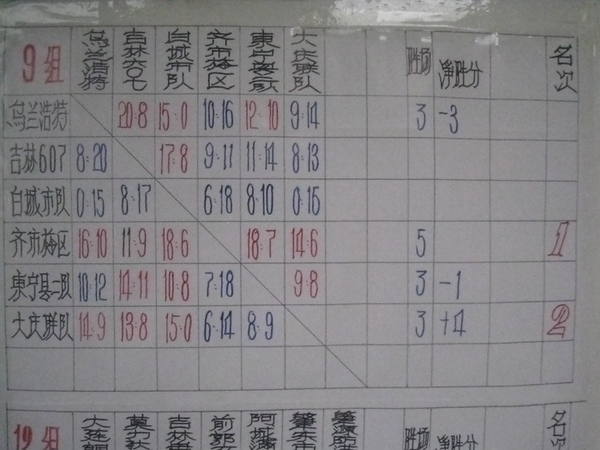 9组 乌兰浩特 吉林六〇七 白城市队 齐市梅区 大庆联队 胜场 净胜分 名次
乌兰浩特 20:8 15:0 10:16 12:10 9:14 3 -3
吉林607 8:20 17:8 9:11 11:14 8:13
白城市队 0:15 8:17 6:18 8:10 0:15
齐市梅区 16:10 11:9 18:6 18:7 14:6 5 1
東宁县二队 10:12 14:11 10:8 7:18 9:8 3 -1
大庆联队 14:9 13:8 15:0 6:14 8:9 3 +4 2
12组 吉林 前郭 阿城 肇东市 肇源 胜场 净胜分 名次